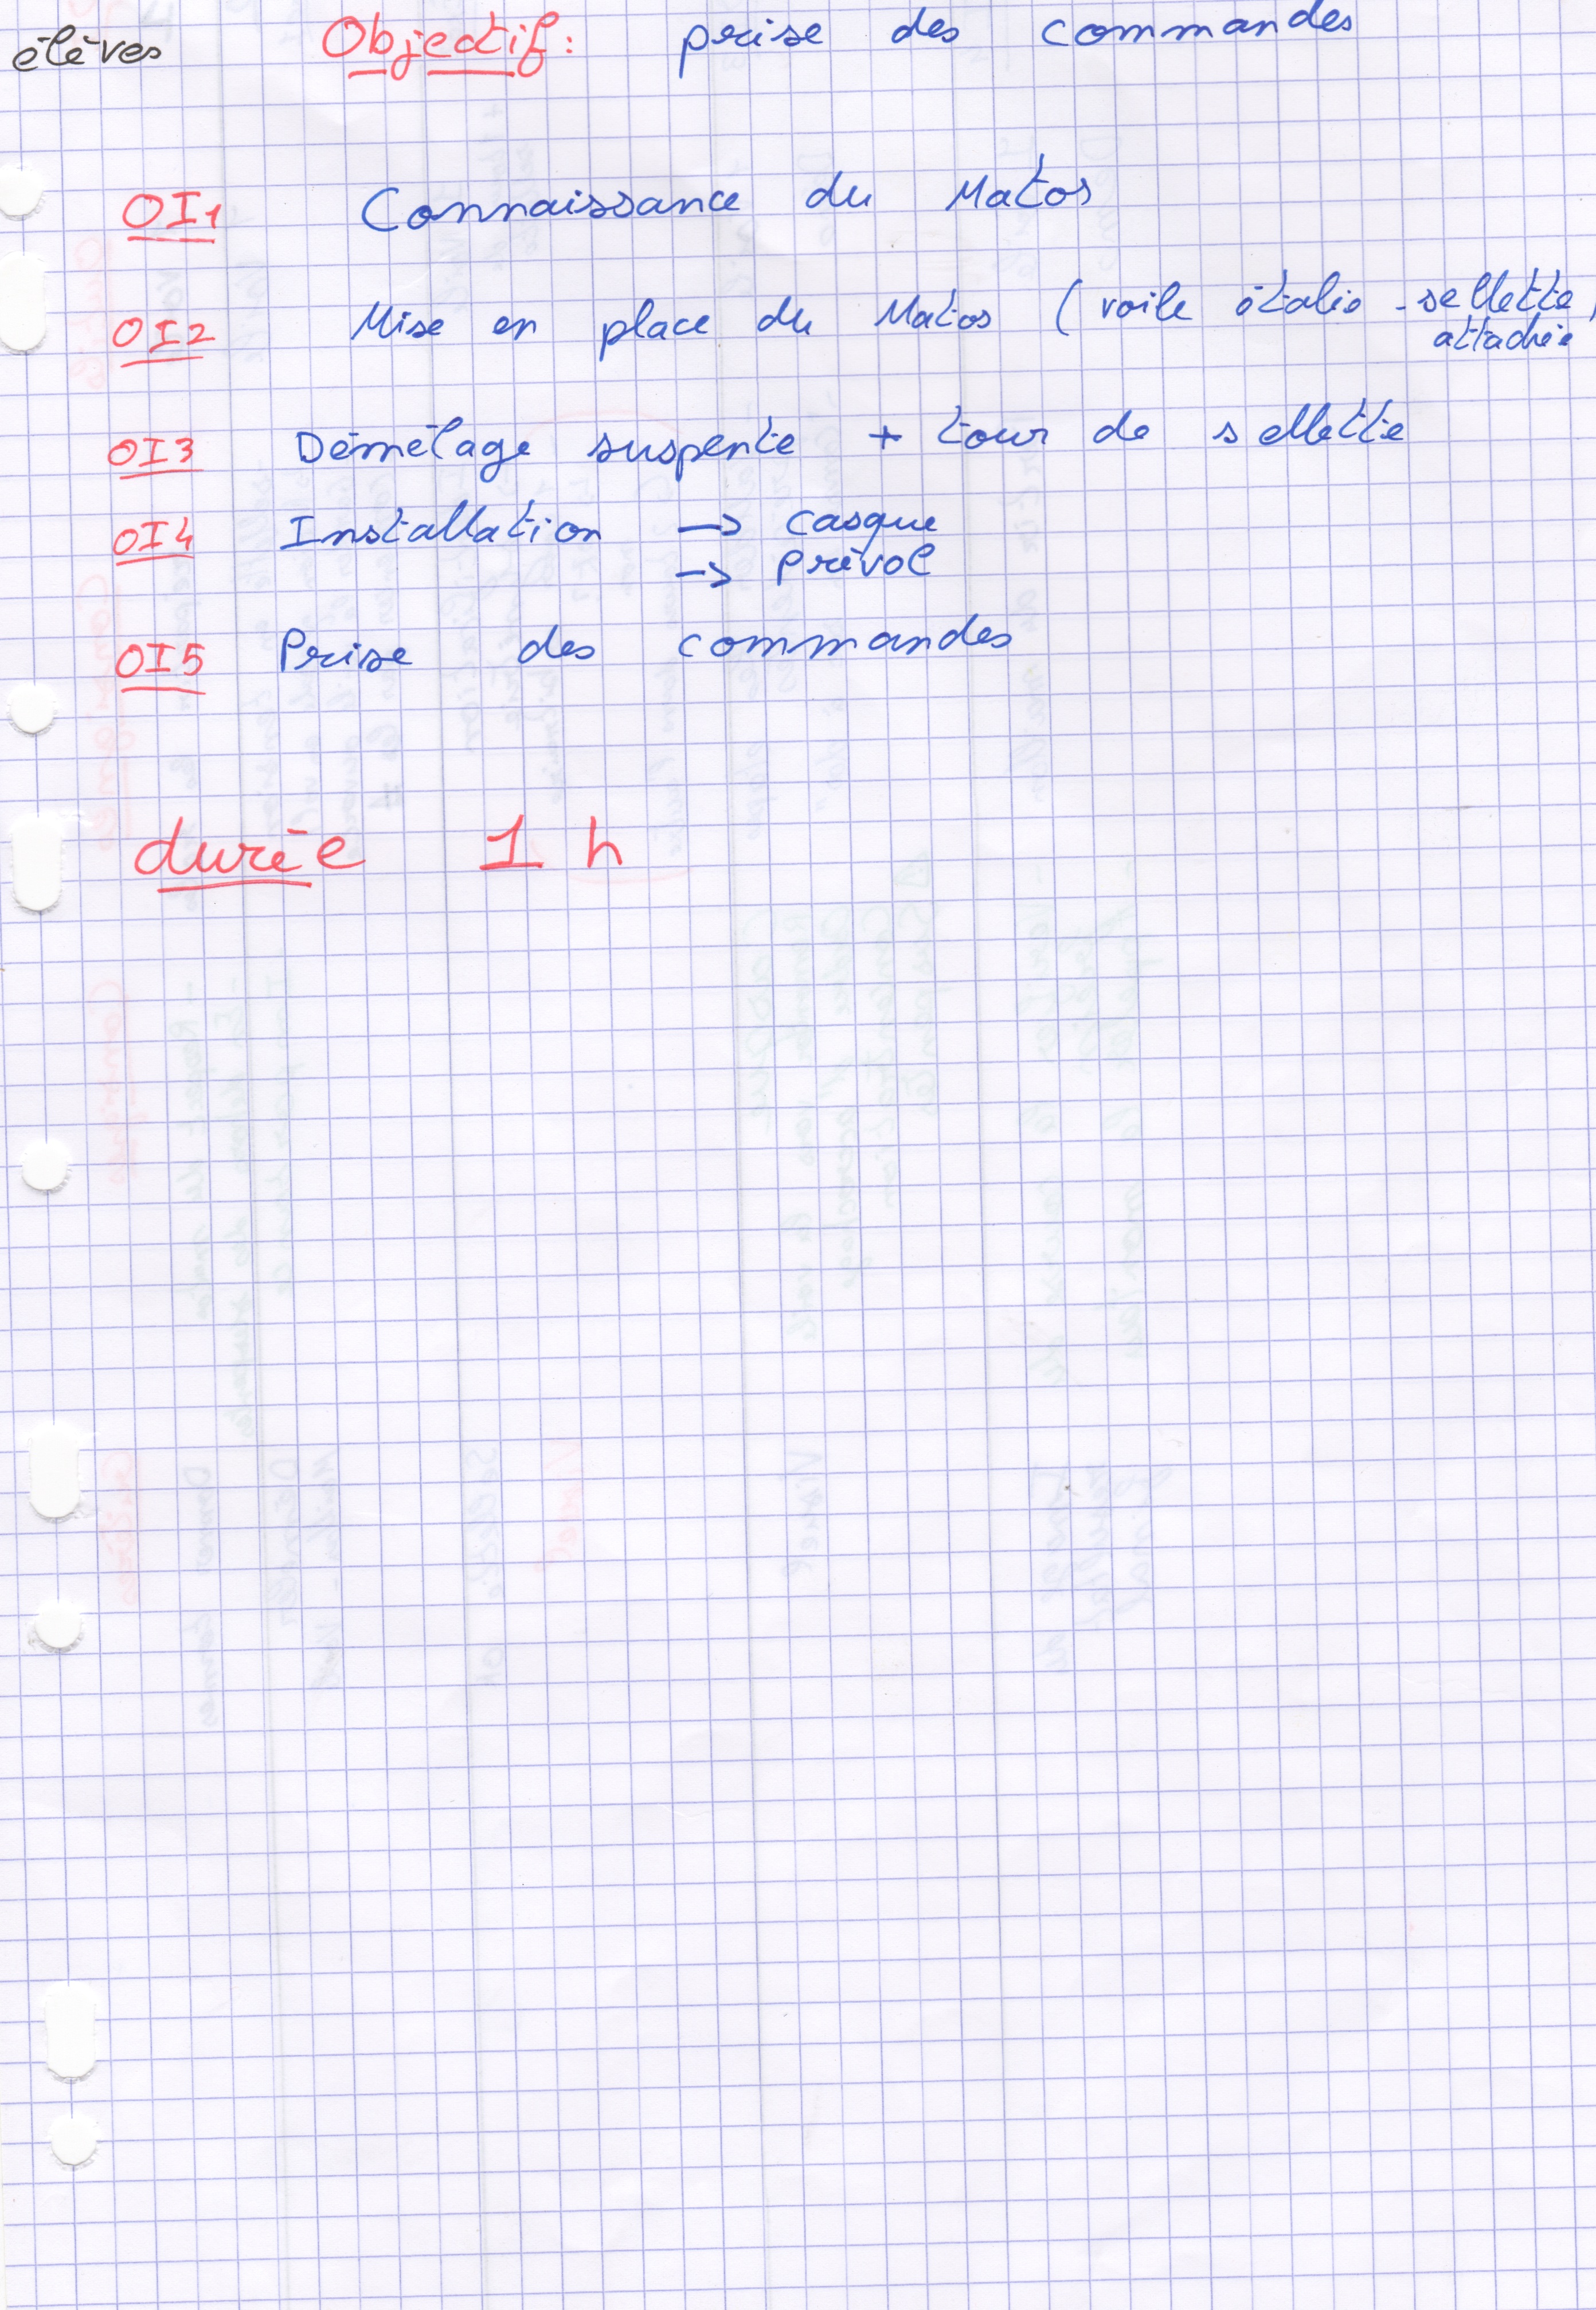 élèves Objectif: prise des commandes
OI1 Connaissance du Matos
OI2 Mise en place du Matos ( voile étalée - sellette
attachée
OI3 Démêlage suspente + tour de sellette
OI4 Installation -> casque
-> prévol
OI5 Prise des commandes
durée 1 h